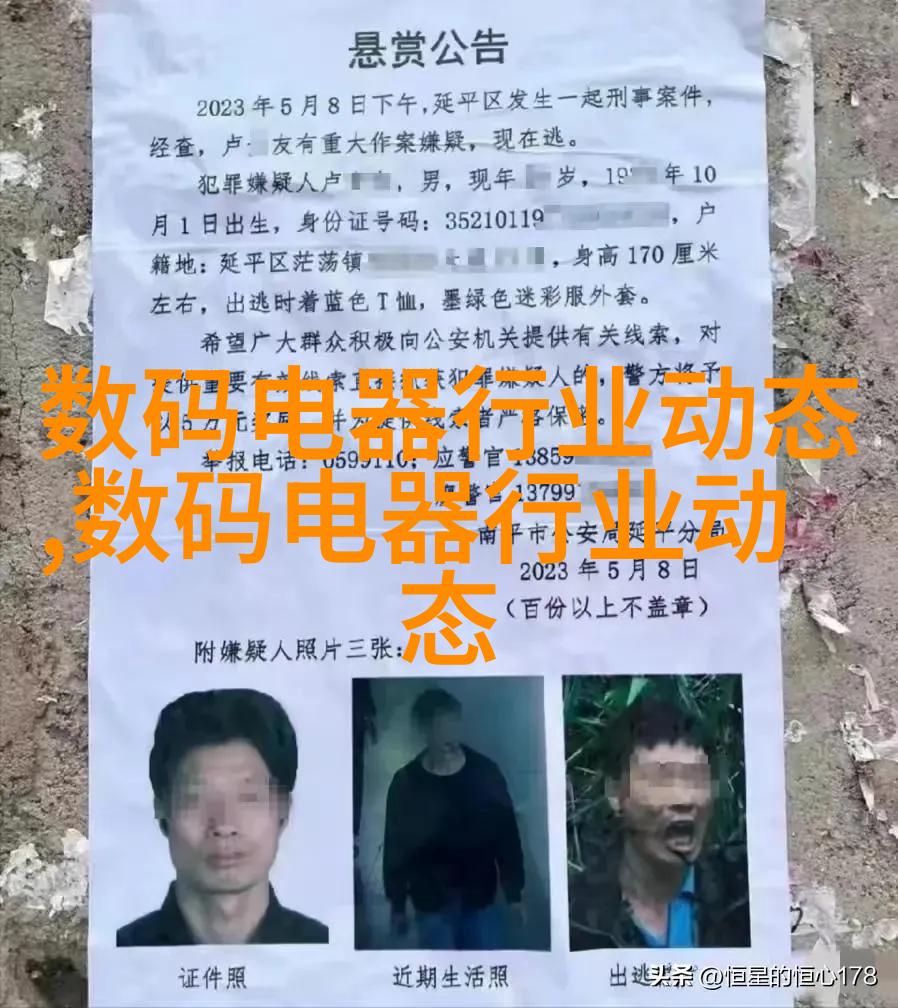 悬赏公告
2023年5月8日下午,延平区发生一起刑事案件,
经查,卢 友有重大作案嫌疑,现在逃。
犯罪嫌疑人卢 ,男,现年 岁,19 年10
月1日出生,身份证号码:35210119 ,户
籍地:延平区茫荡镇 ,身高170厘米
左右,出逃时着蓝色T恤,墨绿色迷彩服外套。
希望广大群众积极向公安机关提供有关线索,对
犯罪嫌疑人的,警方将予
以5万元
举报电话:0599110;应警官13859
警官13799
南平市公安局延平分局
2023年5月8日
(百份以上不盖章)
附嫌疑人照片三张:
数码电器行业动态
,数码电器行业动
态
证件照
近期生活照
出逃
头条 @恒星的恒心178